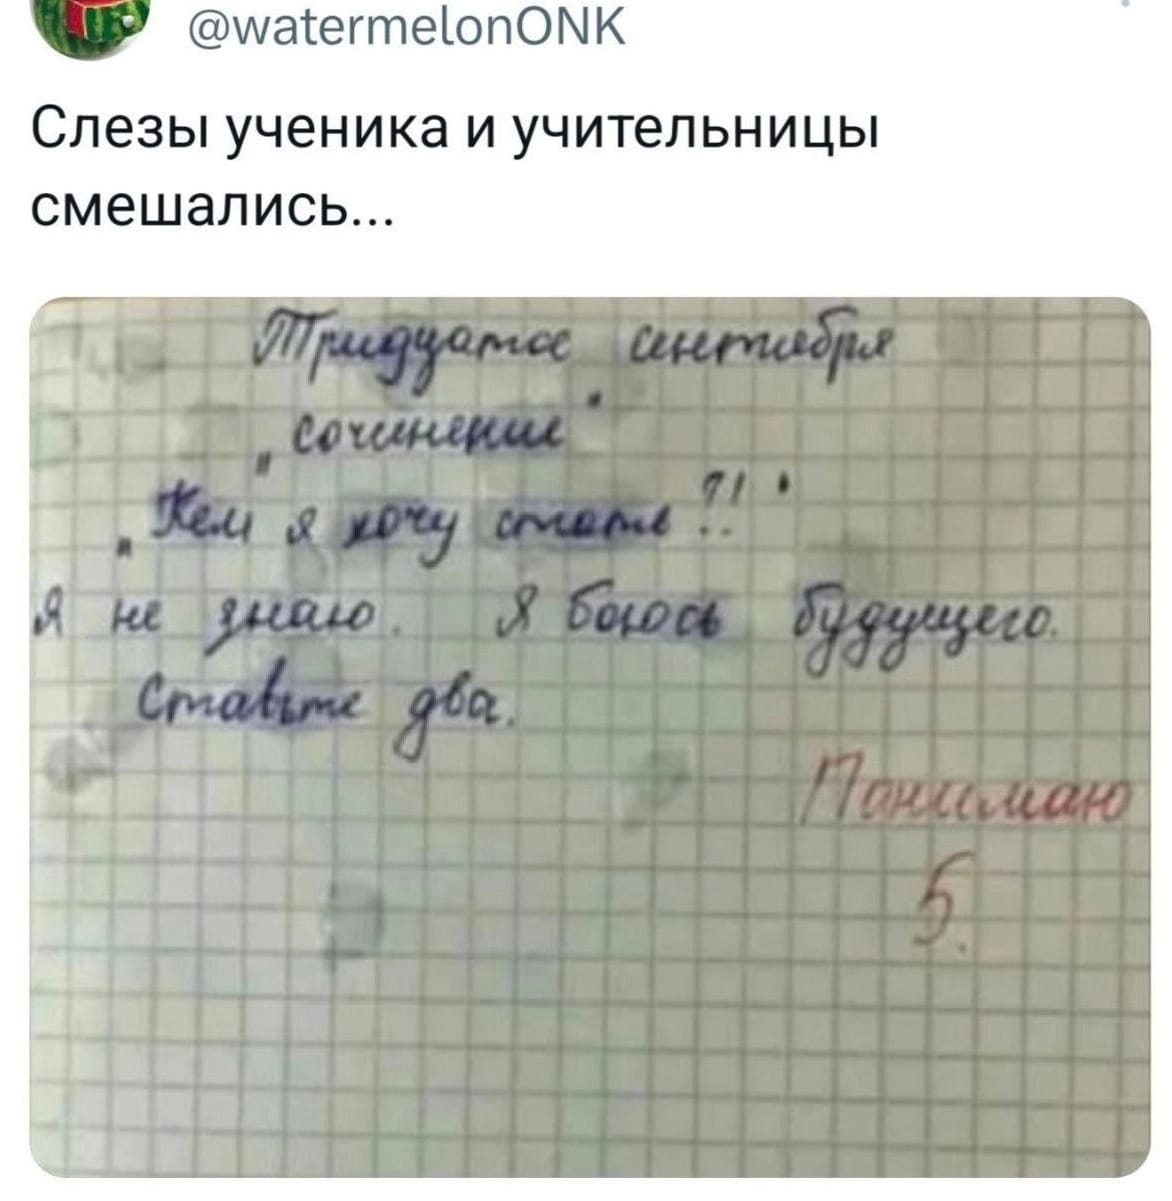 @watermelonONK
Слезы ученика и учительницы
смешались...
Тридцатое сентября
„Сочинение"
„Кем я хочу стать?!"
Я не знаю. Я боюсь будущего.
Ставьте два.
Понимаю
5.